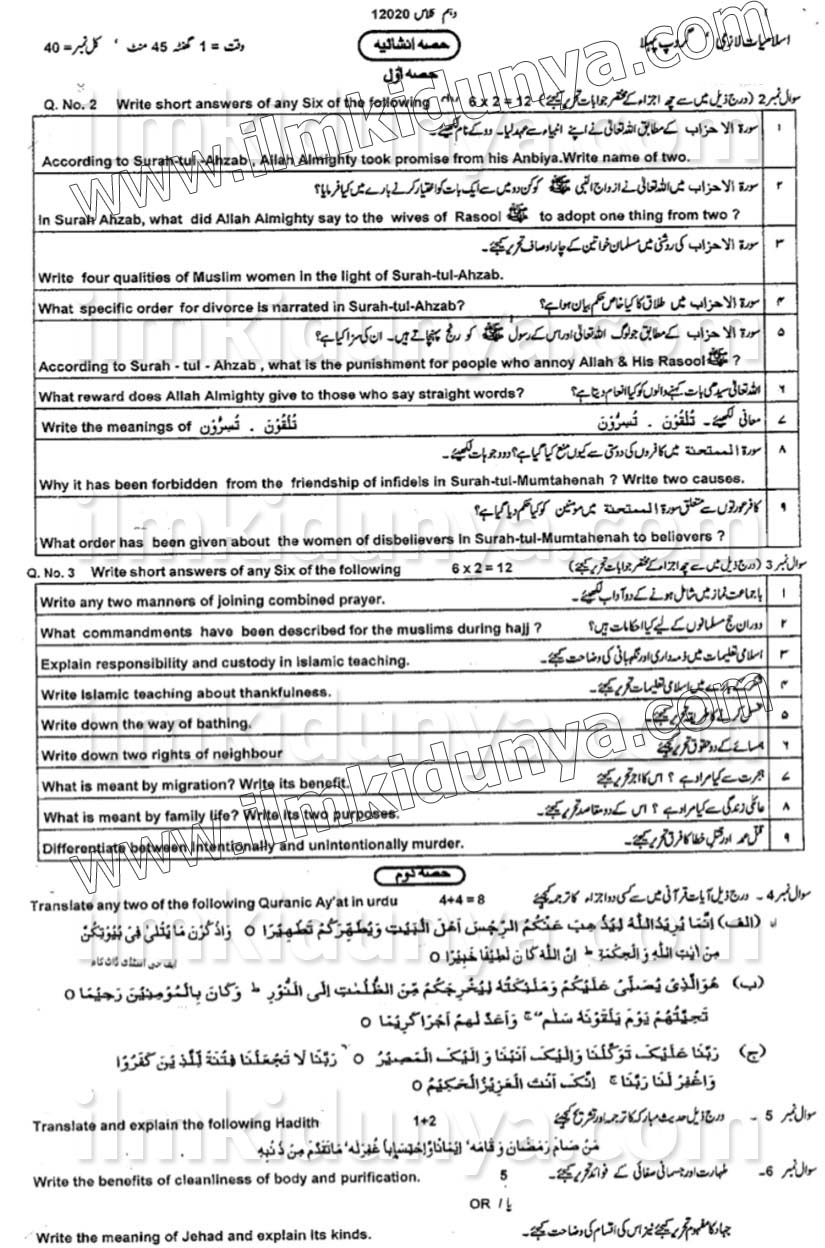 دہم کلاس 12020
اسلامیات لازمی ، گروپ پہلا حصہ انشائیہ وقت = 1 گھنٹہ 45 منٹ ، کل نمبر = 40
حصہ اوّل
Q. No. 2 Write short answers of any Six of the following 6 x 2 = 12 سوال نمبر 2 (درج ذیل میں سے چھ اجزاء کے مختصر جوابات تحریر کیجئے)
۱ سورۃ الاحزاب کے مطابق اللہ تعالیٰ نے اپنے انبیاء سے عہد لیا۔ دو کے نام لکھیئے۔
According to Surah-tul-Ahzab, Allah Almighty took promise from his Anbiya.Write name of two.
۲ سورۃ الاحزاب میں اللہ تعالیٰ نے ازواج النبی ﷺ کو کن دو میں سے ایک بات کو اختیار کرنے بارے میں کیا فرمایا؟
In Surah Ahzab, what did Allah Almighty say to the wives of Rasool ﷺ to adopt one thing from two ?
۳ سورۃ الاحزاب کی روشنی میں مسلمان خواتین کے چار اوصاف تحریر کیجئے۔
Write four qualities of Muslim women in the light of Surah-tul-Ahzab.
What specific order for divorce is narrated in Surah-tul-Ahzab? ۴ سورۃ الاحزاب میں طلاق کا کیا خاص حکم بیان ہوا ہے؟
۵ سورۃ الاحزاب کے مطابق جو لوگ اللہ تعالیٰ اور اس کے رسول ﷺ کو رنج پہنچاتے ہیں۔ ان کی سزا کیا ہے؟
According to Surah - tul - Ahzab , what is the punishment for people who annoy Allah & His Rasool ﷺ ?
What reward does Allah Almighty give to those who say straight words? ۶ اللہ تعالیٰ سیدھی بات کہنے والوں کو کیا انعام دیتا ہے؟
Write the meanings of تُلْقُوْنَ . تُسِرُّوْنَ ۷ معانی لکھیئے۔ تُلْقُوْنَ . تُسِرُّوْنَ
۸ سورۃ الممتحنۃ میں کافروں کی دوستی سے کیوں منع کیا گیا ہے؟ دو وجوہات لکھیئے۔
Why it has been forbidden from the friendship of infidels in Surah-tul-Mumtahenah ? Write two causes.
۹ کافر عورتوں سے متعلق سورۃ الممتحنۃ میں مومنین کو کیا حکم دیا گیا ہے؟
What order has been given about the women of disbelievers in Surah-tul-Mumtahenah to believers ?
Q. No. 3 Write short answers of any Six of the following 6 x 2 = 12 سوال نمبر 3 (درج ذیل میں سے چھ اجزاء کے مختصر جوابات تحریر کیجئے)
Write any two manners of joining combined prayer. ۱ باجماعت نماز میں شامل ہونے کے دو آداب لکھیئے۔
What commandments have been described for the muslims during hajj ? ۲ دوران حج مسلمانوں کے لیے کیا احکامات ہیں؟
Explain responsibility and custody in islamic teaching. ۳ اسلامی تعلیمات میں ذمہ داری اور نگہبانی کی وضاحت کیجئے۔
Write Islamic teaching about thankfulness. ۴ میں اسلامی تعلیمات تحریر کیجئے۔
Write down the way of bathing. ۵ غسل کرنے کا طریقہ تحریر کیجئے۔
Write down two rights of neighbour ۶ ہمسائے کے دو حقوق تحریر کیجئے
What is meant by migration? Write its benefit. ۷ ہجرت سے کیا مراد ہے ؟ اس کا اجر تحریر کیجئے
What is meant by family life? Write its two purposes. ۸ عائلی زندگی سے کیا مراد ہے ؟ اس کے دو مقاصد تحریر کیجئے۔
Differentiate between intentionally and unintentionally murder. ۹ قتل عمد اور قتل خطا کا فرق تحریر کیجئے۔
حصہ دوم
Translate any two of the following Quranic Ay'at in urdu 4+4=8 سوال نمبر 4 - درج ذیل آیات قرآنی میں سے کسی دو اجزاء کا ترجمہ کیجئے
(الف) اِنَّمَا يُرِيْدُ اللّٰهُ لِيُذْهِبَ عَنْكُمُ الرِّجْسَ اَهْلَ الْبَيْتِ وَيُطَهِّرَكُمْ تَطْهِيْرًا o وَاذْكُرْنَ مَا يُتْلٰى فِيْ بُيُوْتِكُنَّ
مِنْ اٰيٰتِ اللّٰهِ وَالْحِكْمَةِ ط اِنَّ اللّٰهَ كَانَ لَطِيْفًا خَبِيْرًا o
(ب) هُوَ الَّذِيْ يُصَلِّيْ عَلَيْكُمْ وَمَلٰٓئِكَتُهٗ لِيُخْرِجَكُمْ مِّنَ الظُّلُمٰتِ اِلَى النُّوْرِ ط وَكَانَ بِالْمُؤْمِنِيْنَ رَحِيْمًا o
تَحِيَّتُهُمْ يَوْمَ يَلْقَوْنَهٗ سَلٰمٌ ۚ وَاَعَدَّ لَهُمْ اَجْرًا كَرِيْمًا o
(ج) رَبَّنَا عَلَيْكَ تَوَكَّلْنَا وَاِلَيْكَ اَنَبْنَا وَاِلَيْكَ الْمَصِيْرُ o رَبَّنَا لَا تَجْعَلْنَا فِتْنَةً لِّلَّذِيْنَ كَفَرُوْا
وَاغْفِرْ لَنَا رَبَّنَا ۚ اِنَّكَ اَنْتَ الْعَزِيْزُ الْحَكِيْمُ o
Translate and explain the following Hadith 1+2 سوال نمبر 5 - درج ذیل حدیث مبارکہ کا ترجمہ اور تشریح کیجئے
مَنْ صَامَ رَمَضَانَ وَ قَامَهٗ اِيْمَانًا وَّاحْتِسَابًا غُفِرَ لَهٗ مَاتَقَدَّمَ مِنْ ذَنْبِهٖ
Write the benefits of cleanliness of body and purification. 5 سوال نمبر 6- طہارت اور جسمانی صفائی کے فوائد تحریر کیجئے۔
OR / یا
Write the meaning of Jehad and explain its kinds. جہاد کا مفہوم تحریر کیجئے نیز اس کی اقسام کی وضاحت کیجئے۔
www.ilmkidunya.com
www.ilmkidunya.com
ilmkidunya.com
ilmkidunya.com
ilmkidunya.com
ilmkidunya.com
ilmkidunya.com
ilmkidunya.com